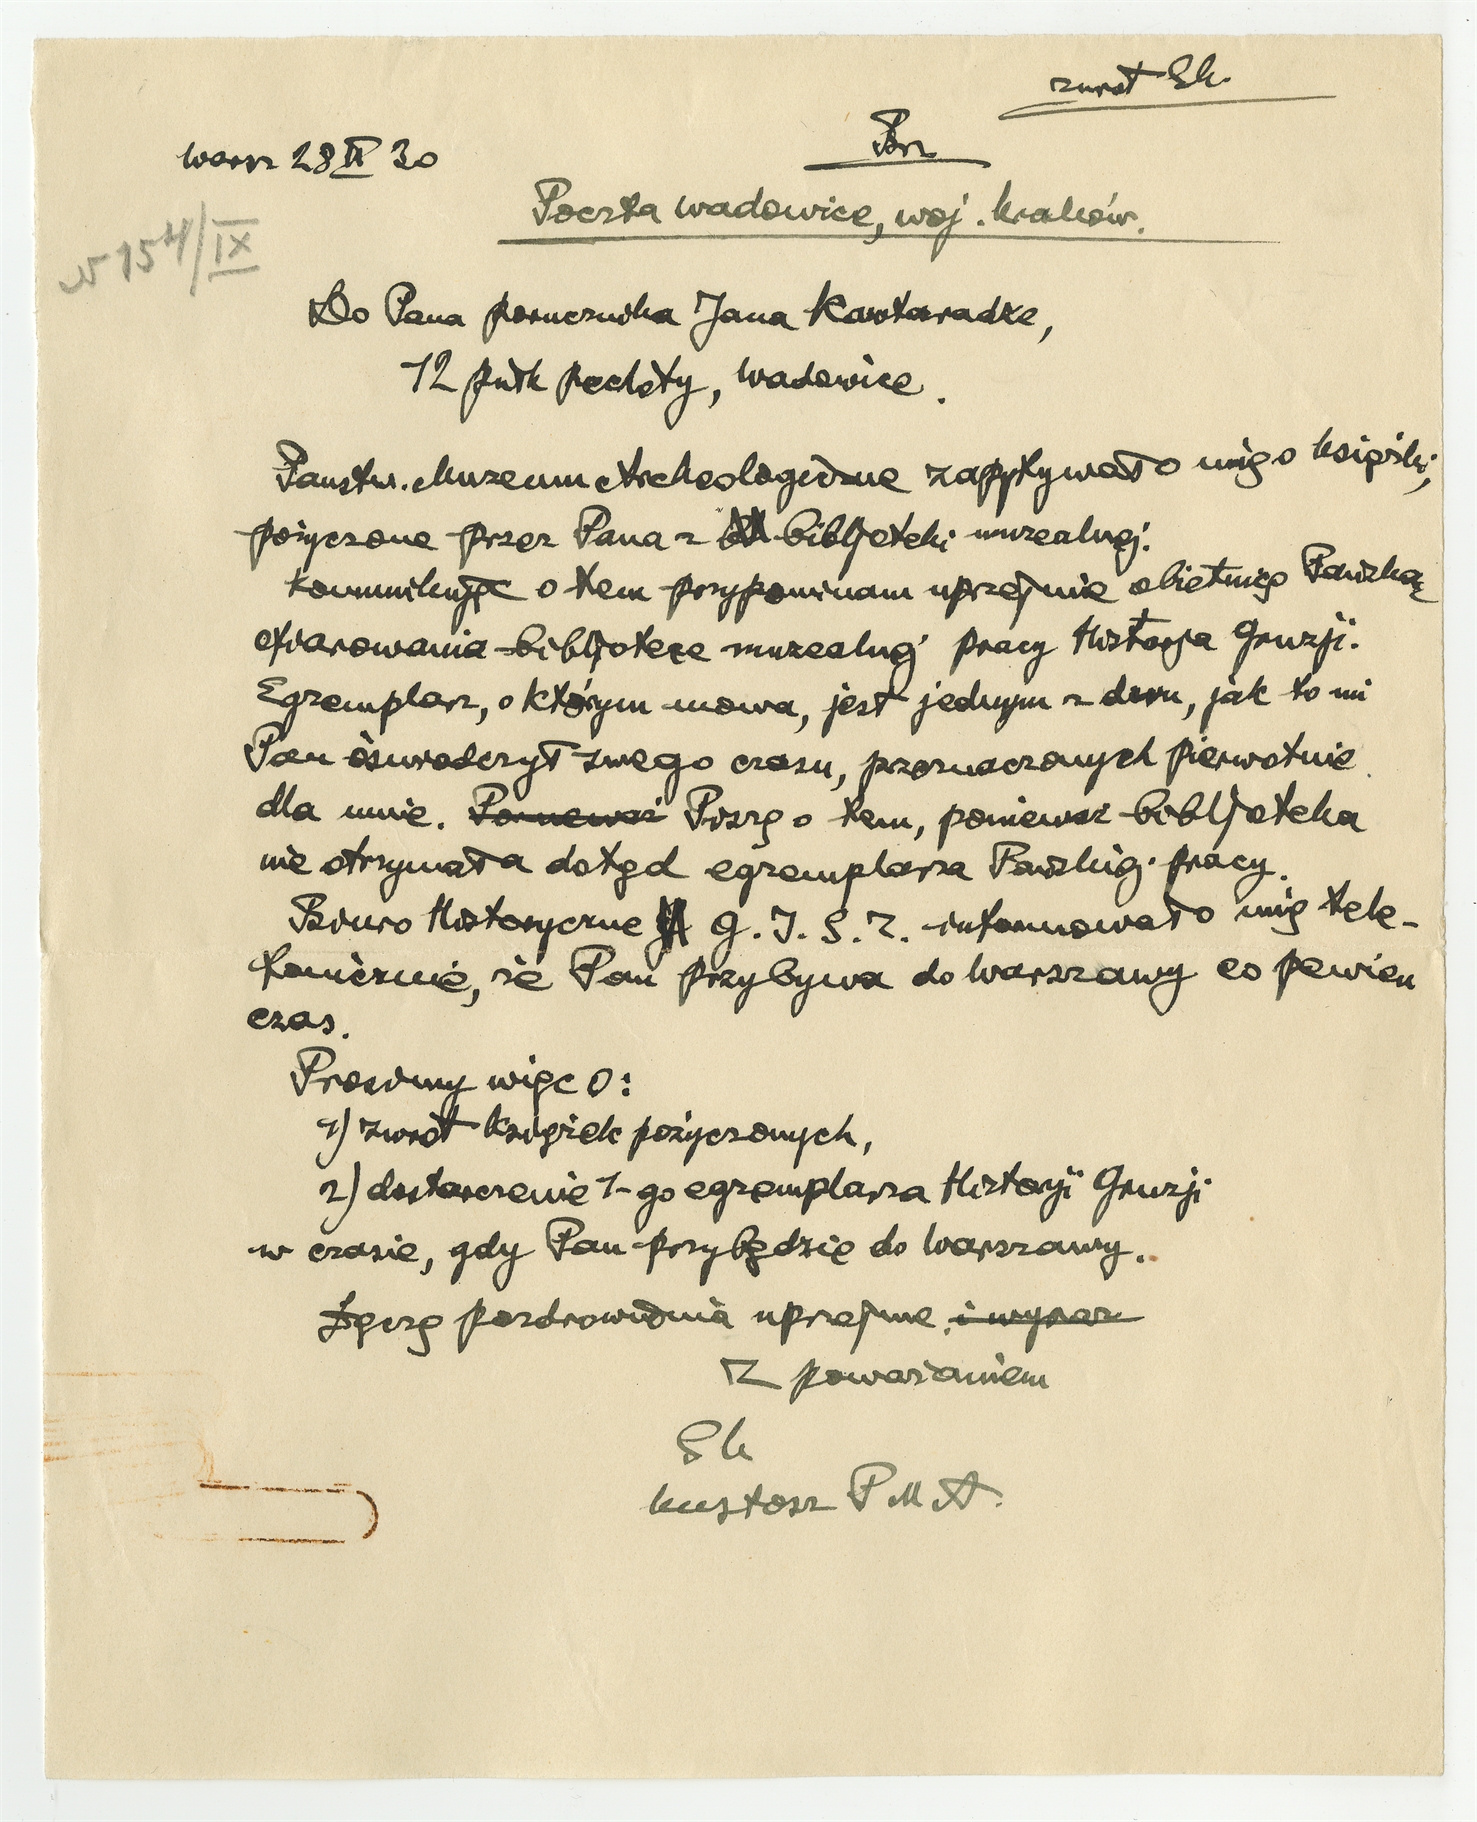 zwrot Sk.
Warsz 28 IX 30
Brz
Poczta Wadowice, woj. Kraków.
N 154/IX
Do Pana porucznika Jana Kawtaradze,
12 pułk piechoty, Wadowice.
Państw. Muzeum Archeologiczne zapytywało mię o książki,
pożyczone przez Pana z bibljoteki muzealnej.
Komunikując o tem przypominam uprzejmie obietnicę Pańską
ofiarowania bibljotece muzealnej pracy Historja Gruzji.
Egzemplarz, o którym mowa, jest jednym z dwu, jak to mi
Pan oświadczył swego czasu, przeznaczonych pierwotnie
dla mnie. Ponieważ Piszę o tem, ponieważ bibljoteka
nie otrzymała dotąd egzemplarza Pańskiej pracy.
Biuro Historyczne G. I. S. Z. informowało mię tele-
fonicznie, że Pan przybywa do Warszawy co pewien
czas.
Prosimy więc o:
1) zwrot książek pożyczonych,
2) dostarczenie 1-go egzemplarza Historji Gruzji
w czasie, gdy Pan przybędzie do Warszawy.
Łączę pozdrowienia uprzejme i wyraz
Z poważaniem
Sk
kustosz P M A.